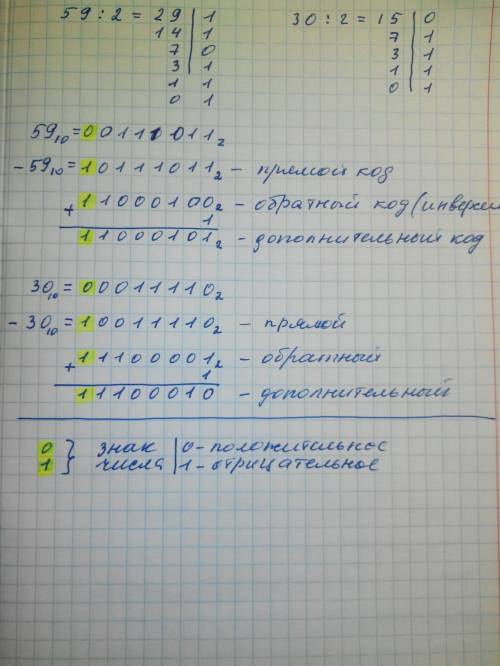 59 : 2 = 29 | 1
14 | 1
7 | 0
3 | 1
1 | 1
0 | 1
30 : 2 = 15 | 0
7 | 1
3 | 1
1 | 1
0 | 1
59₁₀ = 00111011₂
-59₁₀ = 10111011₂ - прямой код
11000100₂ - обратный код (инверси
+ 1
11000101₂ - дополнительный код
30₁₀ = 00011110₂
-30₁₀ = 10011110₂ - прямой
11100001₂ - обратный
+ 1
11100010 - дополнительный
0 } знак | 0 - положительное
1 } числа | 1 - отрицательное